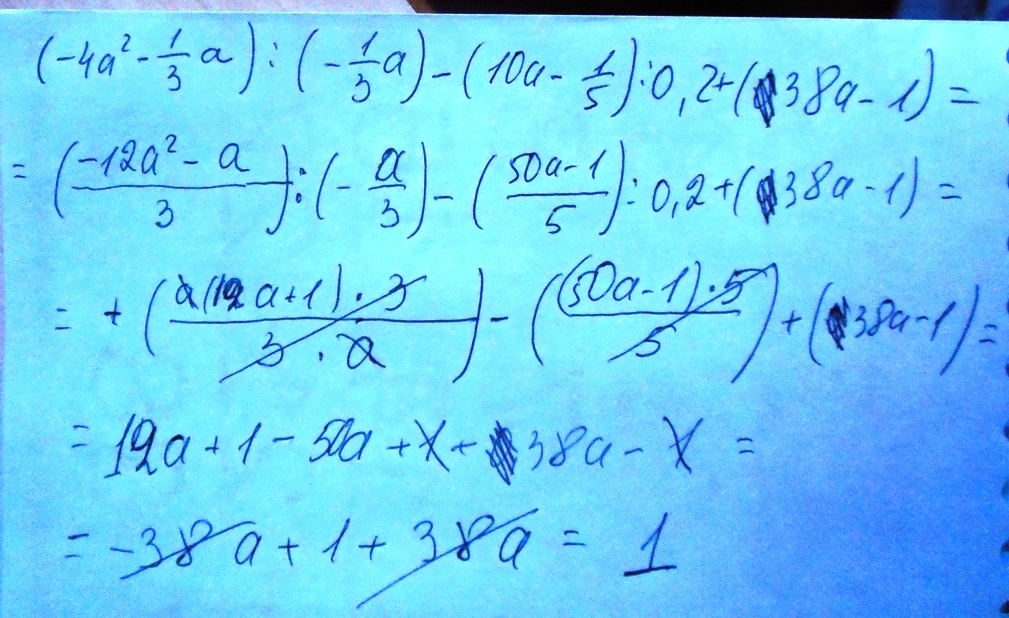 (-4a² - 1/3 a) : (-1/3 a) - (10a - 1/5) : 0,2 + (38a - 1) =
= ((-12a² - a)/3) : (-a/3) - ((50a-1)/5) : 0,2 + (38a - 1) =
= + ((a(12a+1) · 3)/(3 · a)) - (((50a-1) · 5)/5) + (38a-1) =
= 12a + 1 - 50a + 1 + 38a - 1 =
= -38a + 1 + 38a = 1